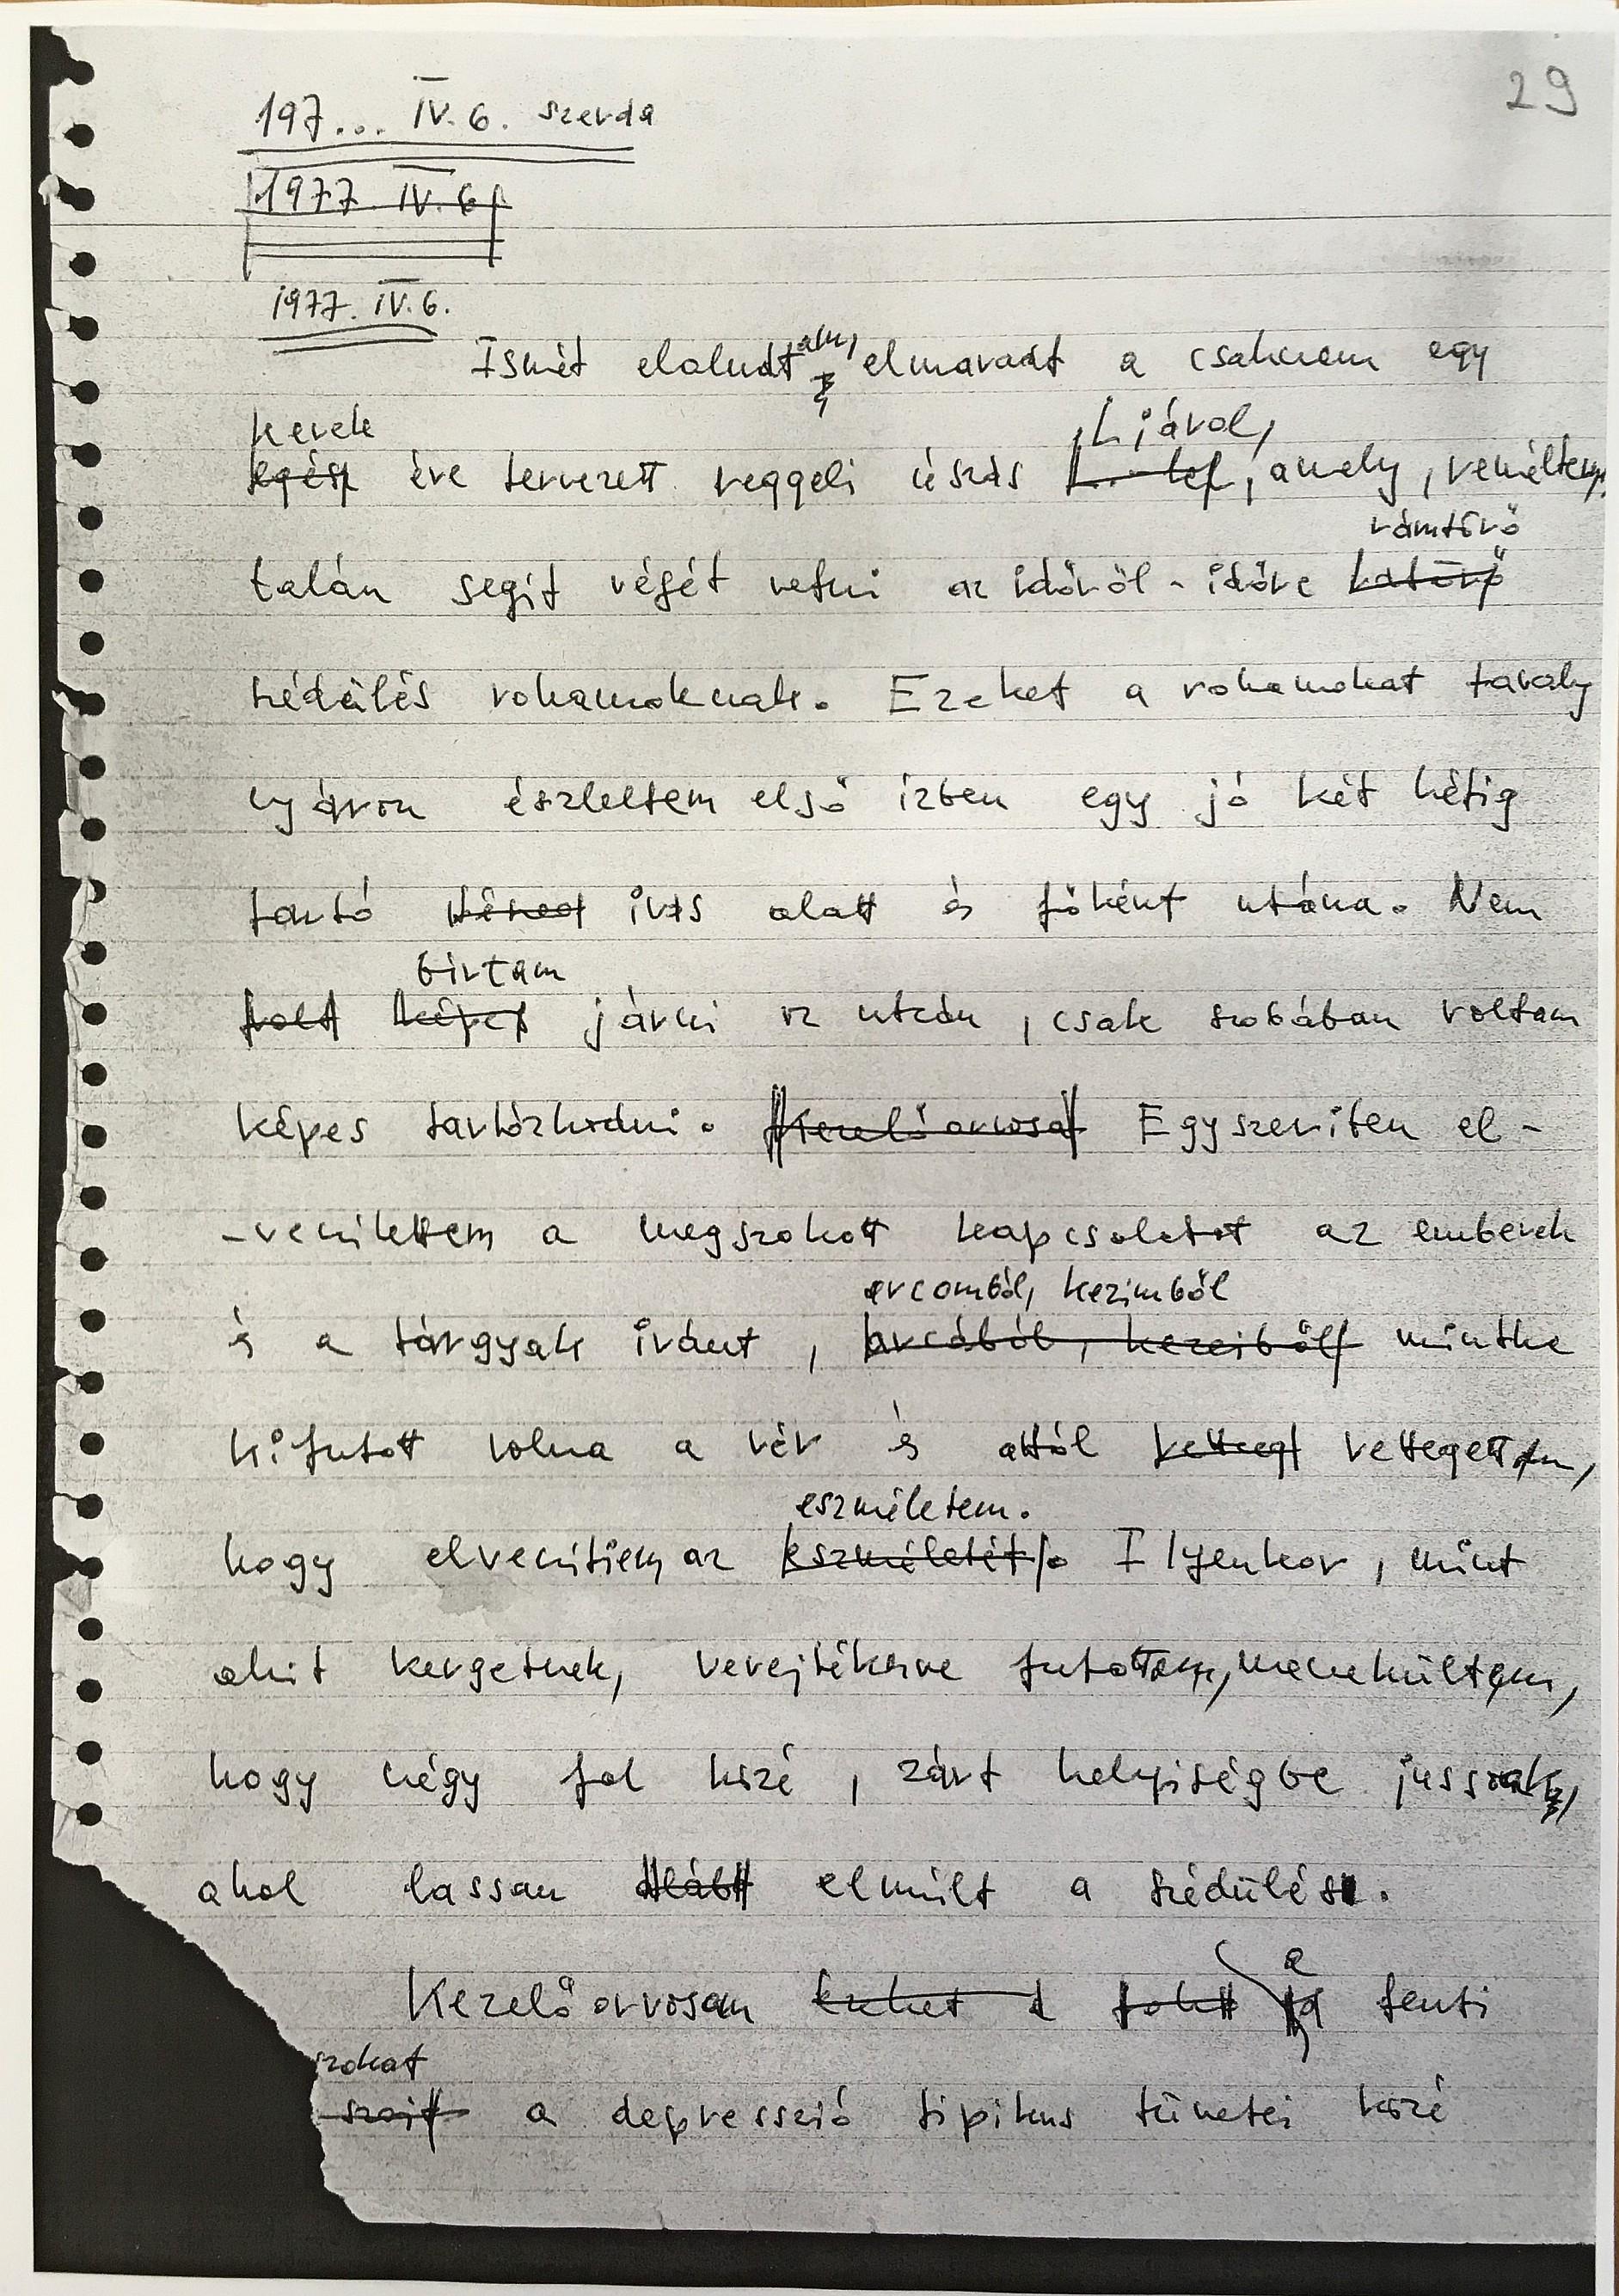 29
197... IV. 6. szerda
1977. IV. 6
1977. IV. 6.
Ismét elaludtam, elmaradt a csaknem egy
kerek L jával,
egész éve tervezett reggeli úszás L.-lel, amely, reméltem,
rámtörő
talán segít végét vetni az időről-időre rátörő
szédülés rohamoknak. Ezeket a rohamokat tavaly
nyáron észleltem első ízben egy jó két hétig
tartó ivás alatt és főként utána. Nem
birtam
volt képes járni az utcán, csak szobában voltam
képes tartózkodni. Kezelőorvosa Egyszerüen el-
-veszítettem a megszokott kapcsolatot az emberek
arcomból, kezimből
és a tárgyak iránt, arcából, kezeiből mintha
kifutott volna a vér és attól rettegett rettegettem,
eszméletem.
hogy elveszítem az eszméletét. Ilyenkor, mint
akit kergetnek, verejtékezve futottam, menekültem,
hogy négy fal közé, zárt helyiségbe jussak,
ahol lassan elmúlt a szédülés.
a
Kezelőorvosom ezeket a fenti
szokat
a depresszió tipikus tünetei közé